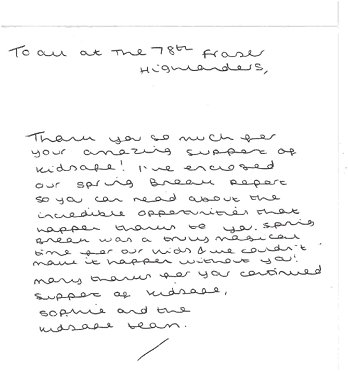 To all at the 78th Fraser
Highlanders,
Thank you so much for
your amazing support of
Kidsafe! I've enclosed
our Spring Break Report
so you can read about the
incredible opportunities that
happen thanks to you. Spring
Break was a truly magical
time for our kids & we couldn't
make it happen without you!
Many thanks for your continued
support of Kidsafe,
Sophie and the
Kidsafe team.